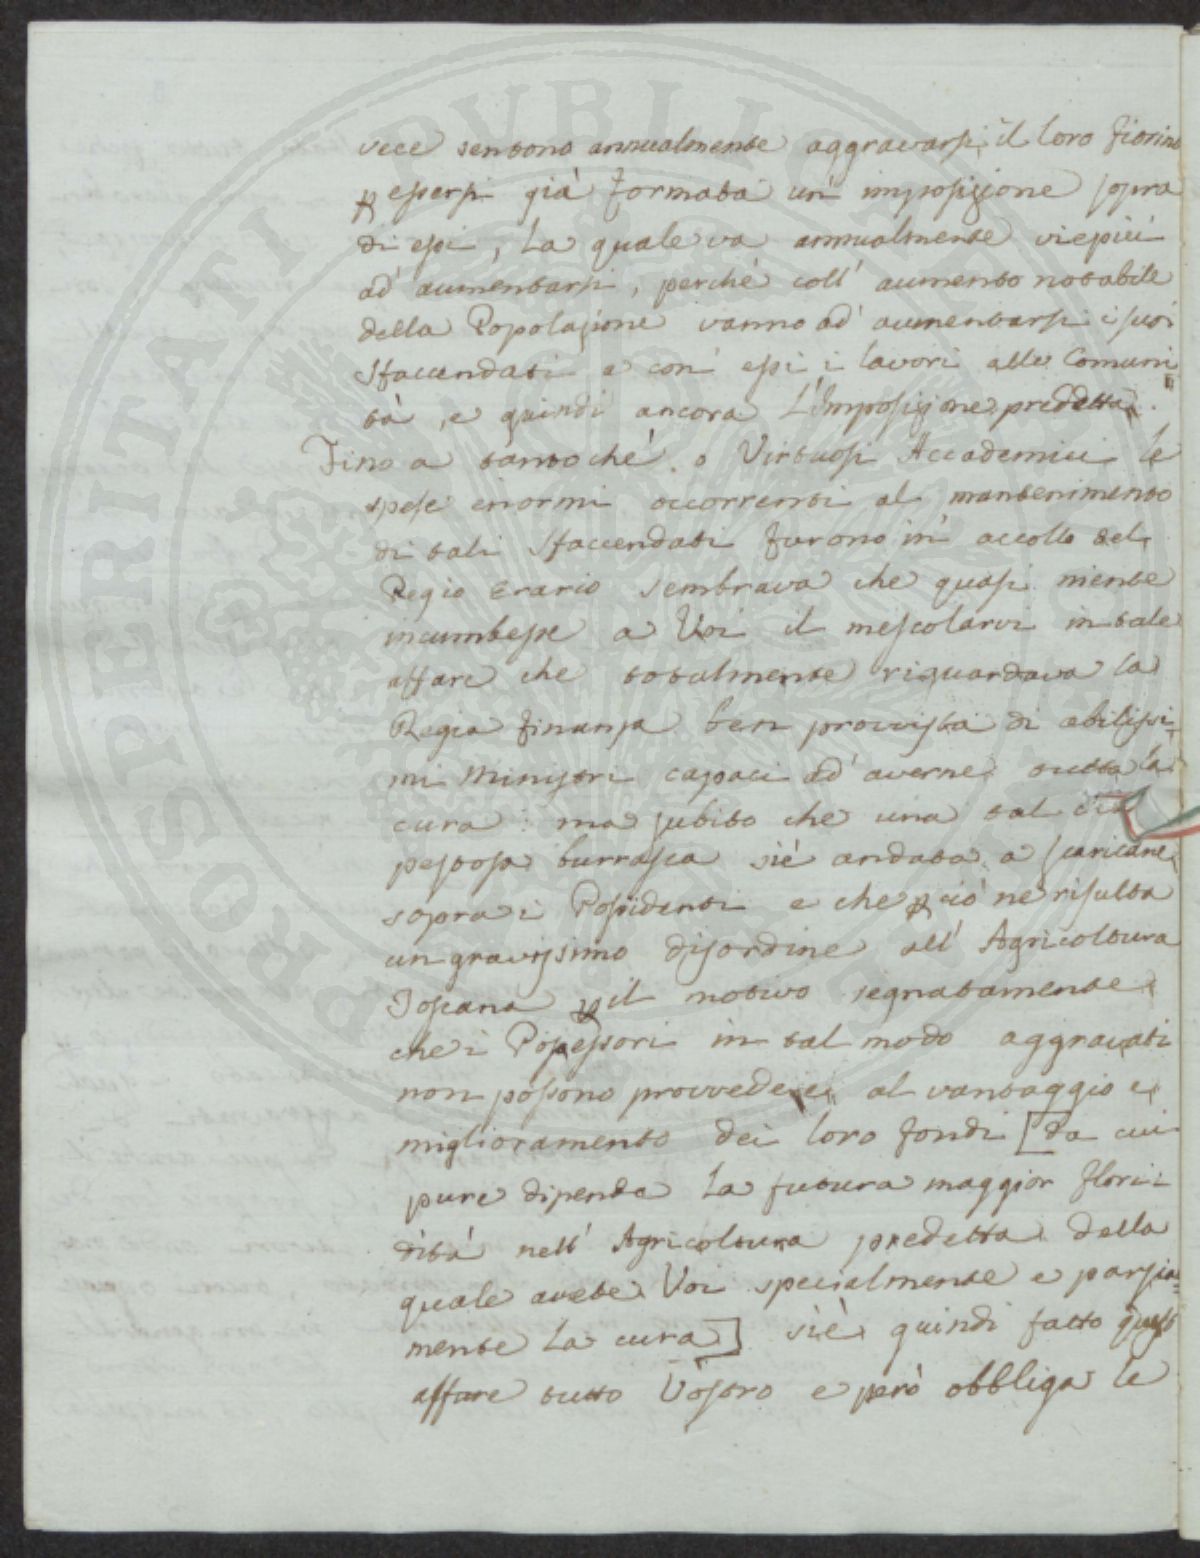 vece sentono annualmente aggravarsi il loro fiorino
p essersi già formata un' imposizione sopra
di essi, La quale va annualmente viepiù
ad' aumentarsi, perchè coll' aumento notabile
della Popolazione vanno ad' aumentarsi i suoi
sfaccendati e con' essi i lavori alle Comuni=
tà, e quindi ancora L'Imposizione predetta.
Fino a tanto chè o Virtuosi Accademici le
spese enormi occorrenti al mantenimento
di tali sfaccendati furono in' accollo del
Regio Erario sembrava che quasi niente
incumbesse a Voi il mescolarvi in tale
affare che totalmente riguardava la
Regia finanza ben provvista di abilissi=
mi Ministri capaci ad' averne tutta la
cura: ma subito che una tal
pestosa burrasca siè andata a scaricare
sopra i Possidenti e che p ciò ne risulta
un gravissimo disordine all' Agricoltura
Toscana p il motivo segnatamente
che i Possessori in tal modo aggravati
non possono provvedere al vantaggio e
miglioramento dei loro fondi [da cui
pure dipende La futura maggior flori=
dità nell' Agricoltura predetta della
quale avete Voi specialmente e parzia=
mente La cura] siè quindi fatto questo
affare tutto Vostro e però obbliga le
PROSPERITATI PUBLICAE